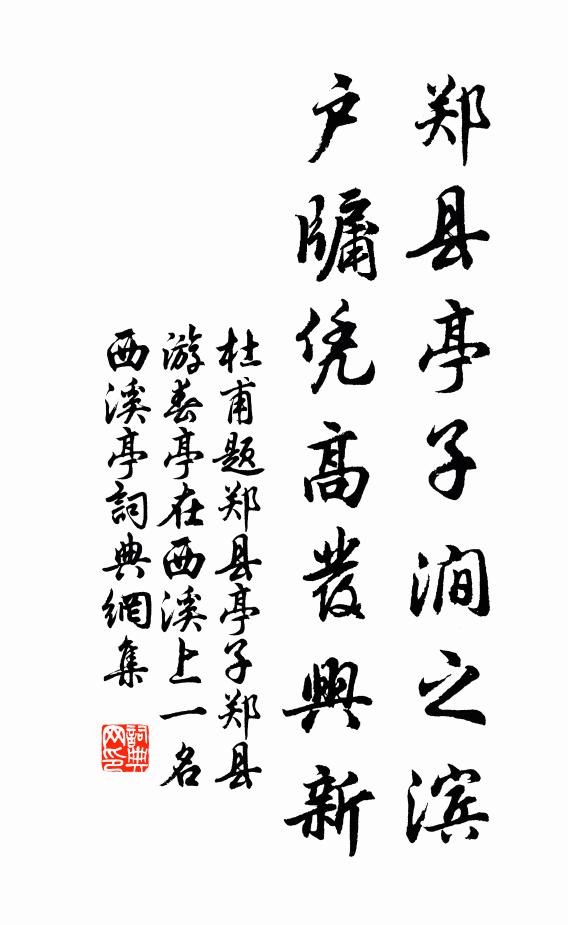 郑县亭子涧之滨
户牖凭高發興新
杜甫题郑县亭子郑县
游春亭在西溪上一名
西溪亭詞典網集
詞典
网印